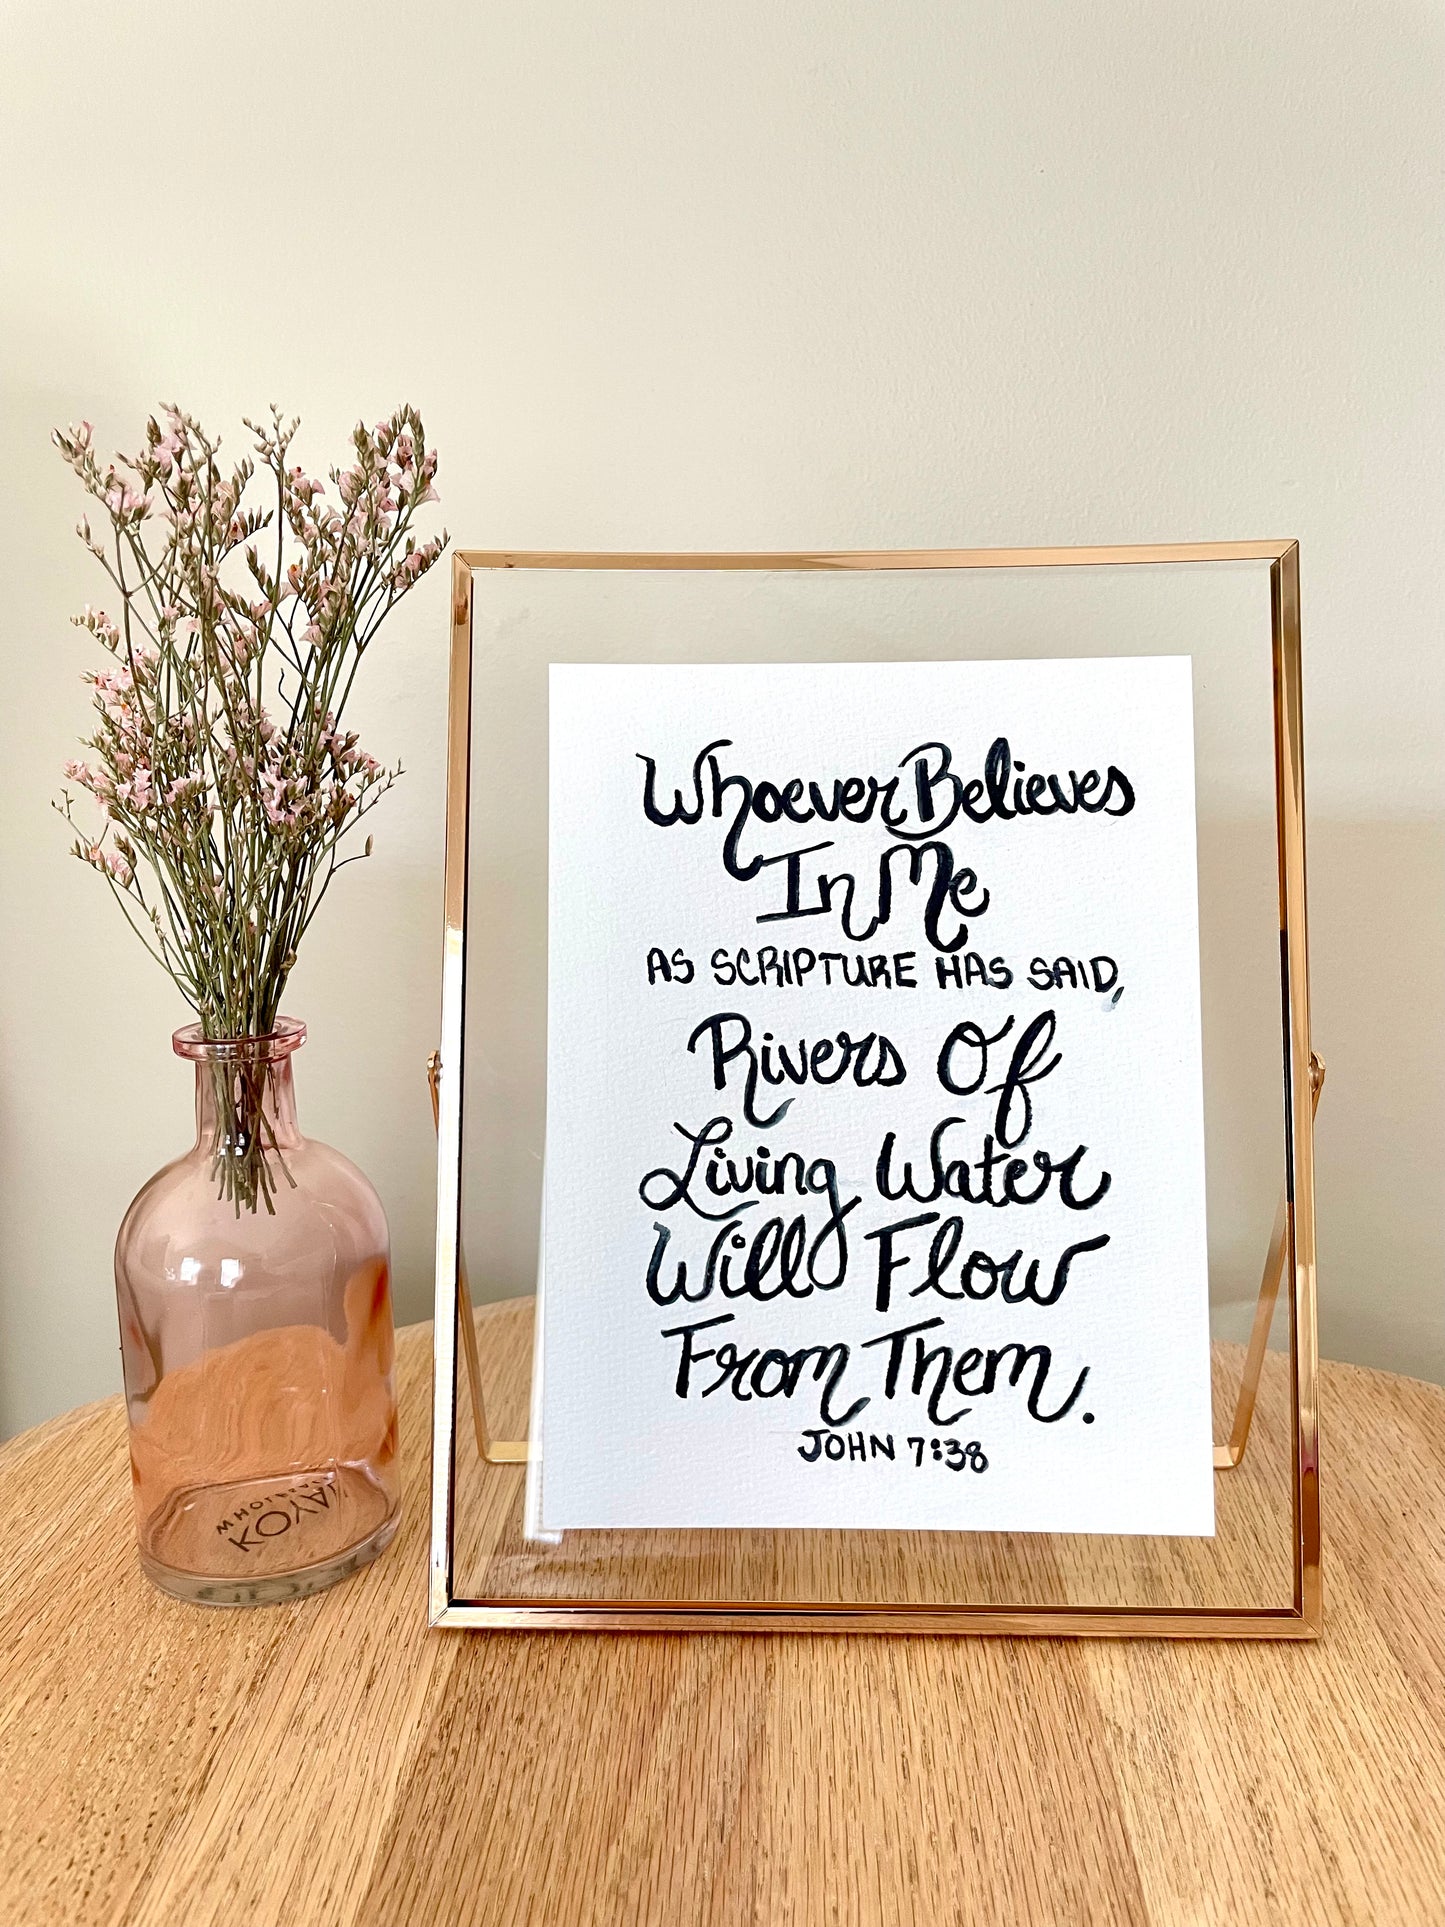 Whoever Believes
In Me
AS SCRIPTURE HAS SAID,
Rivers Of
Living Water
Will Flow
From Them.
JOHN 7:38
KOYAL
WHOLESALE